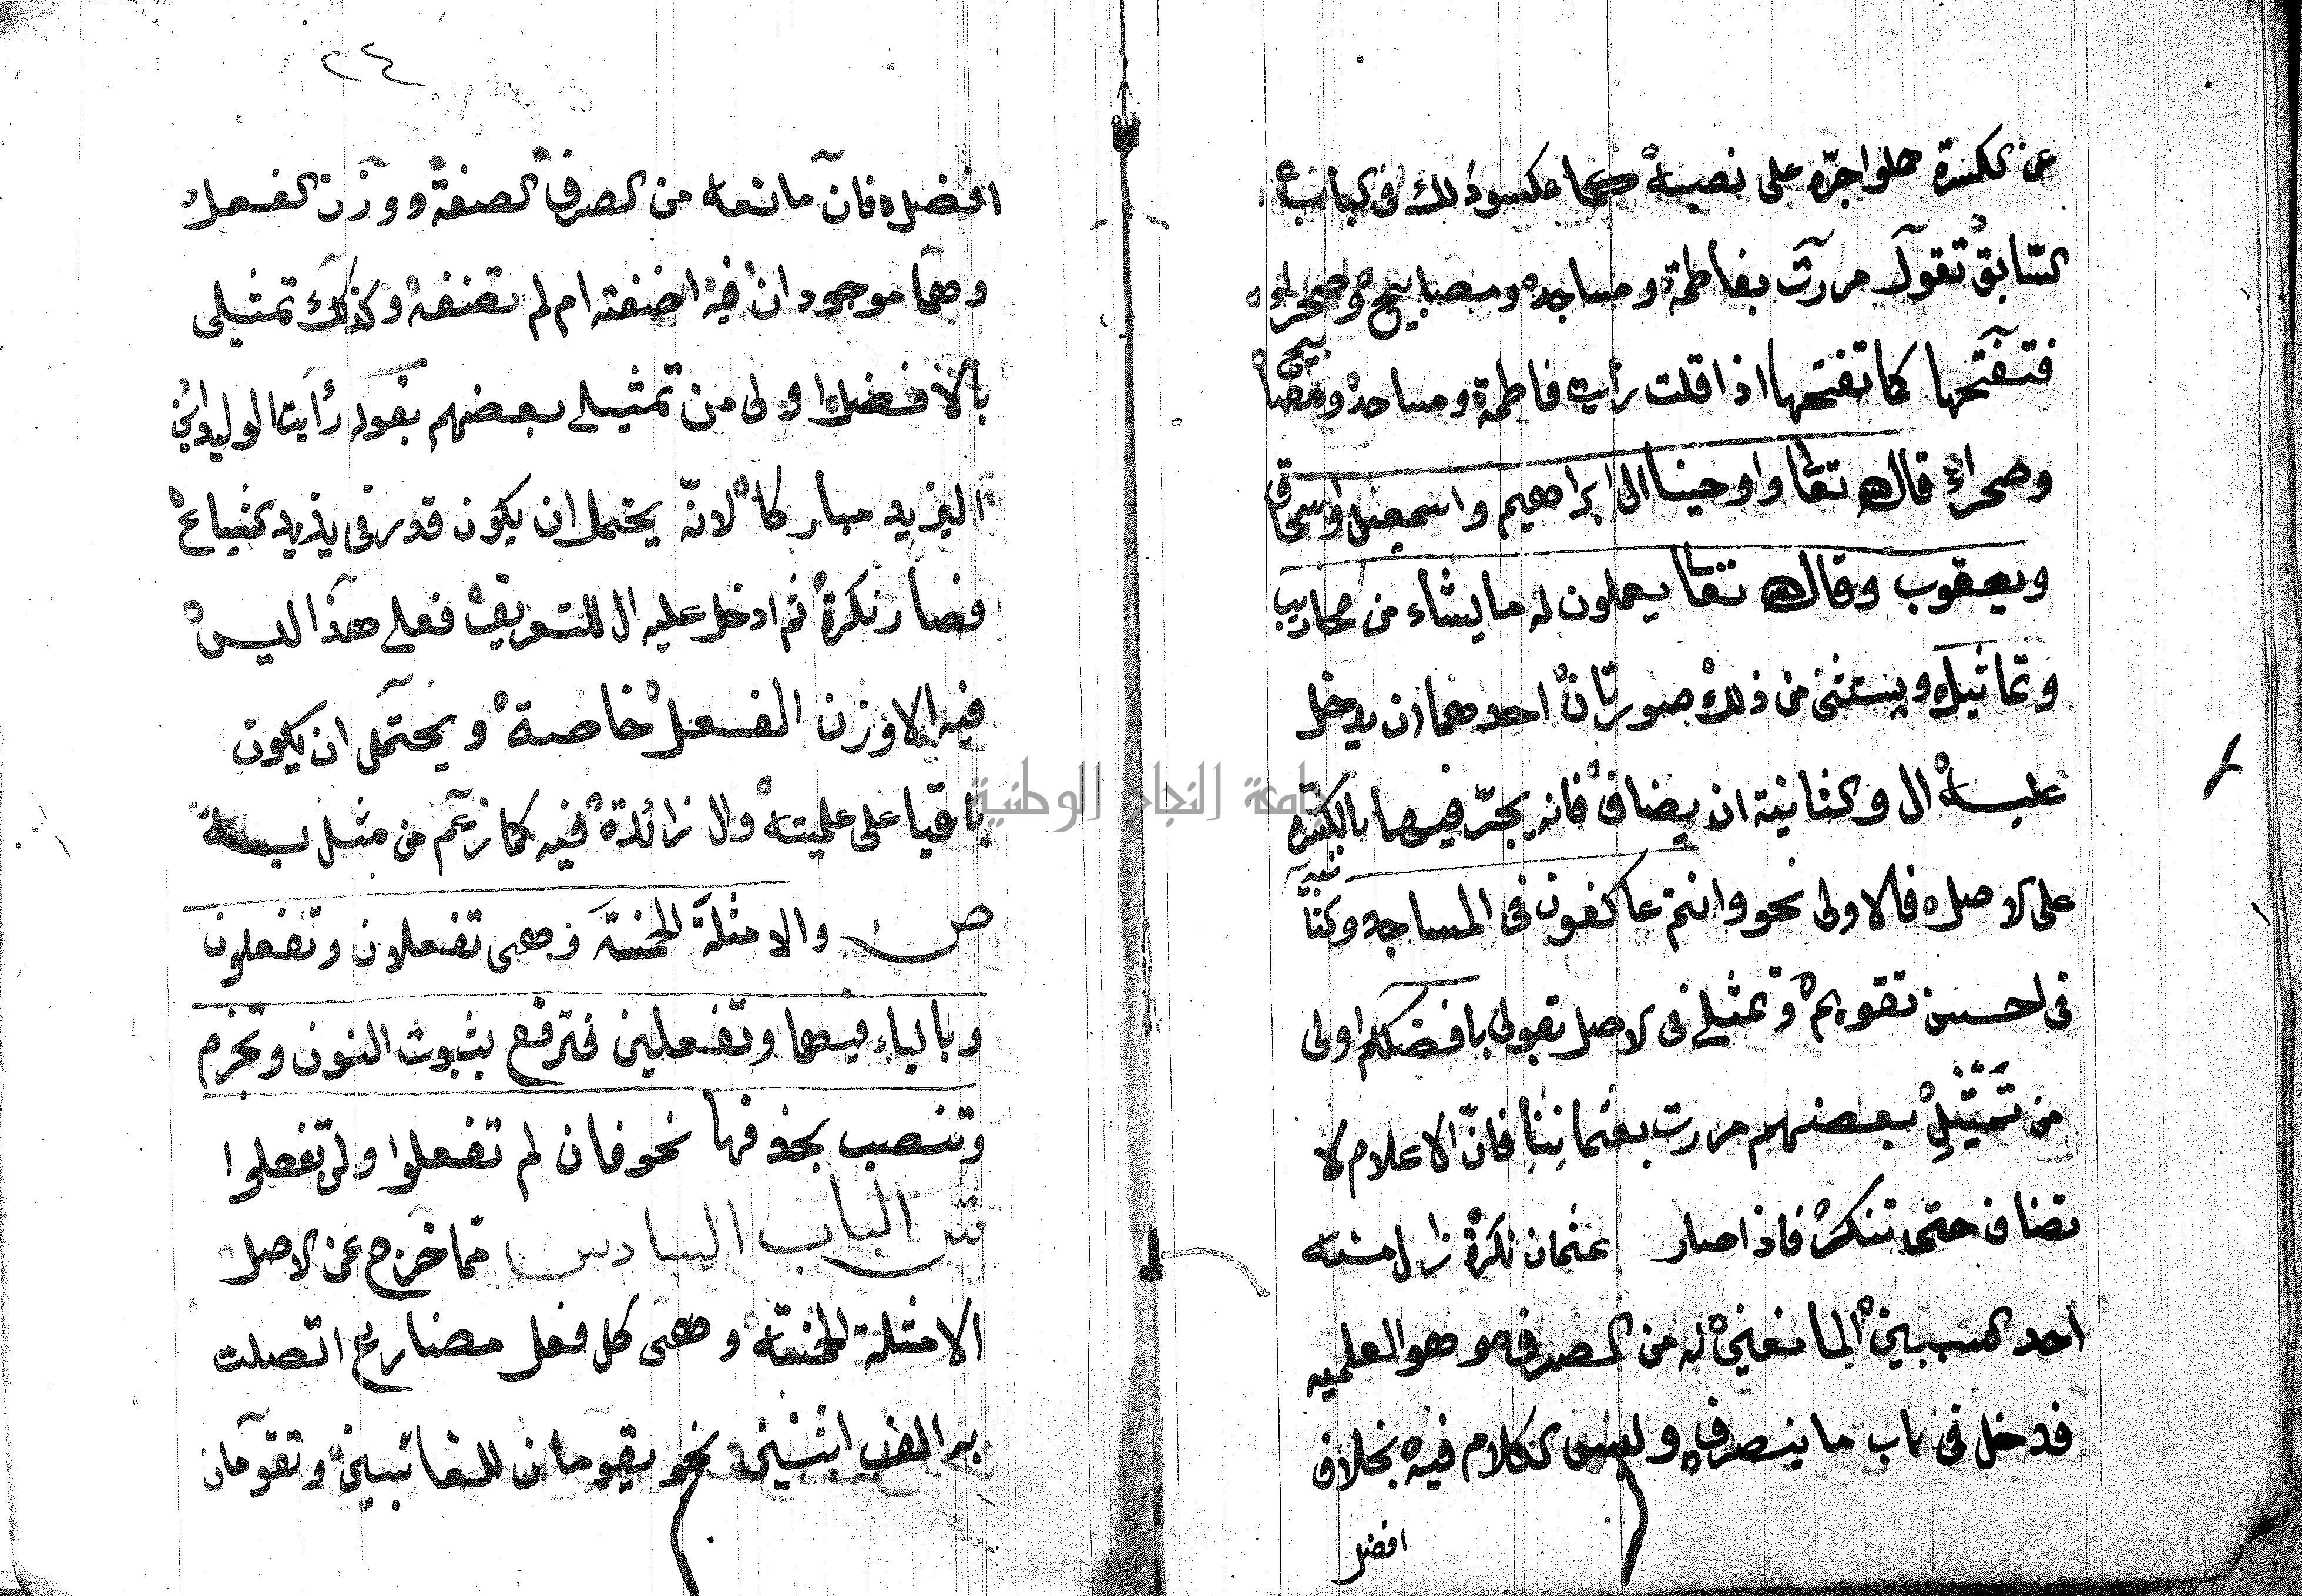 عن الكسرة حملوا جرّه على نصبه كما عكسوا ذلك فى الباب
السابق تقول مررت بفاطمة ومساجد ومصابيح وصحراء
فتفتحها كما تفتحها اذا قلت رأيت فاطمة ومساجد ومصابيح
وصحراء قال الله تعا واوحينا الى ابراهيم واسمعيل واسحاق
ويعقوب وقال الله تعا يعملون له ما يشاء من محاريب
وتماثيل ويستثنى من ذلك صورتان احدهما ان يدخل
عليه ال والثانية ان يضاف فانه يجرّ فيهما بالكسره
على الاصل فالاولى نحو وانتم عاكفون فى المساجد والثانية
فى احسن تقويم وتمثلى فى الاصل بقولى بافضلكم اولى
من تمثيل بعضهم مررت بعثماننا فانّ الاعلام لا
تضاف حتى تنكر فاذا صار عثمان نكرة زال منه
احد السببين المانعين له من الصرف وهو العلميه
فدخل فى باب ما ينصرف وليس الكلام فيه بخلاف
افضل
٢٤
افضل فان مانعه من الصرف الصفة ووزن الفعل
وهما موجودان فيه اضفته ام لم تضفه وكذلك تمثيلى
بالافضل اولى من تمثيل بعضهم بقوله رأيت الوليد ابن
اليزيد مباركا لانّه يحتمل ان يكون قدر فى يزيد الشياع
فصار نكرة ثم ادخل عليه ال للتعريف فعلى هذا ليس
فيه الا وزن الفعل خاصة ويحتمل ان يكون
باقيا على علميته وال زائدة فيه كما زعم من مثل به
ص والامثلة الخمسة وهى تفعلان وتفعلون
وبالياء فيهما وتفعلين فترفع بثبوت النون وتجزم
وتنصب بحذفها نحو فان لم تفعلوا ولن تفعلوا
ش الباب السادس مما خرج عن الاصل
الامثلة الخمسة وهى كل فعل مضارع اتصلت
به الف اثنين نحو يقومان للغائبين وتقومان
جامعة النجاح الوطنية